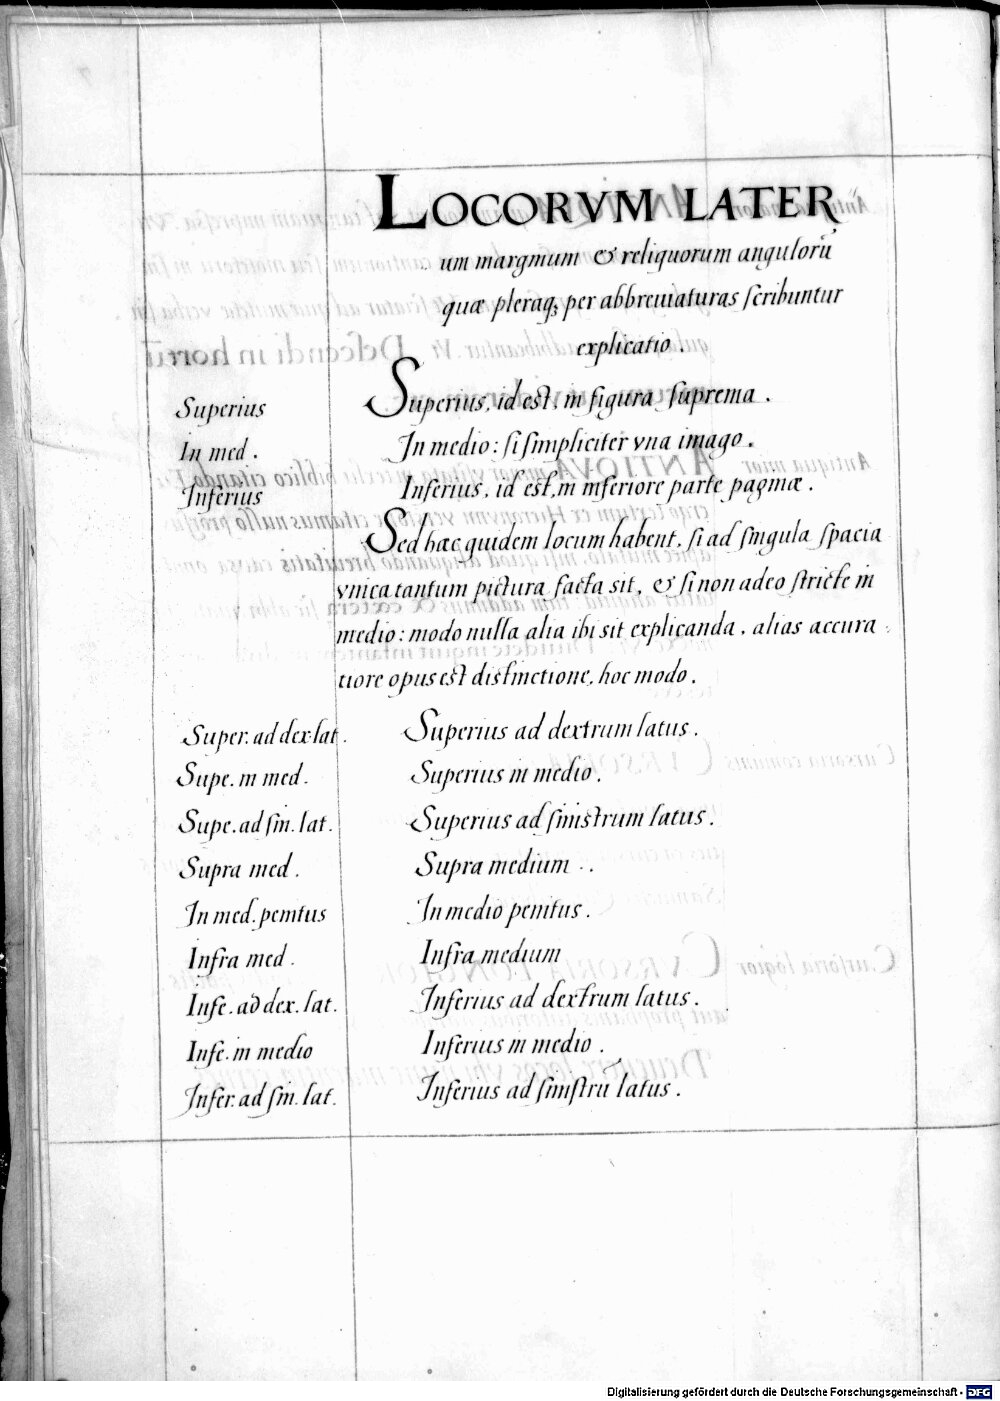 LOCORVM LATER
um marginum & reliquorum angulorũ
quæ pleraqꝫ per abbreuiaturas ſcribuntur
explicatio.
Superius Superius, id est, in figura ſuprema.
In med. In medio: ſi ſimpliciter vna imago.
Inferius Inferius, id est, in inferiore parte paginæ.
Sed hæc quidem locum habent, ſi ad ſingula ſpacia
vnica tantum pictura facta sit, & ſi non adeo ſtricte in
medio: modo nulla alia ibi sit explicanda, alias accura
tiore opus est distinctione, hoc modo.
Super. ad dex. lat. Superius ad dextrum latus.
Supe. in med. Superius in medio.
Supe. ad ſin. lat. Superius ad ſinistrum latus.
Supra med. Supra medium.
In med. penitus In medio penitus.
Infra med. Infra medium
Infe. ad dex. lat. Inferius ad dextrum latus.
Infe. in medio Inferius in medio.
Infer. ad ſin. lat. Inferius ad ſiniſtrũ latus.
Digitalisierung gefördert durch die Deutsche Forschungsgemeinschaft - DFG